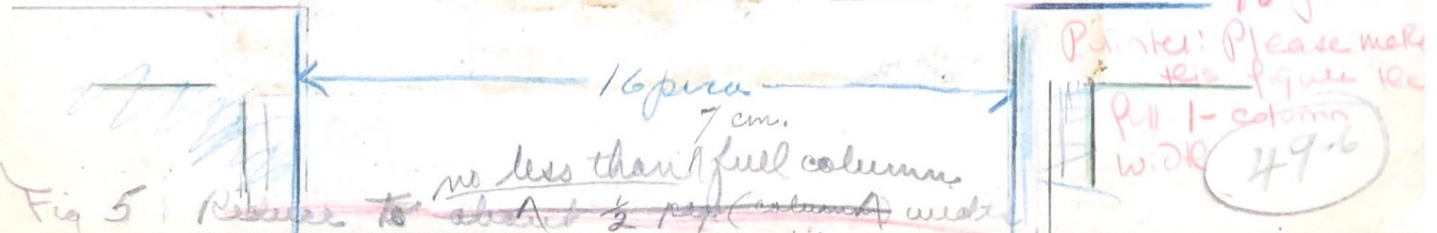 16 picas
7 cm.
no less than full column
Fig 5 : Reduce to about ½ page (column) width
Printer: Please make
this figure the
full 1-column
width
49.6